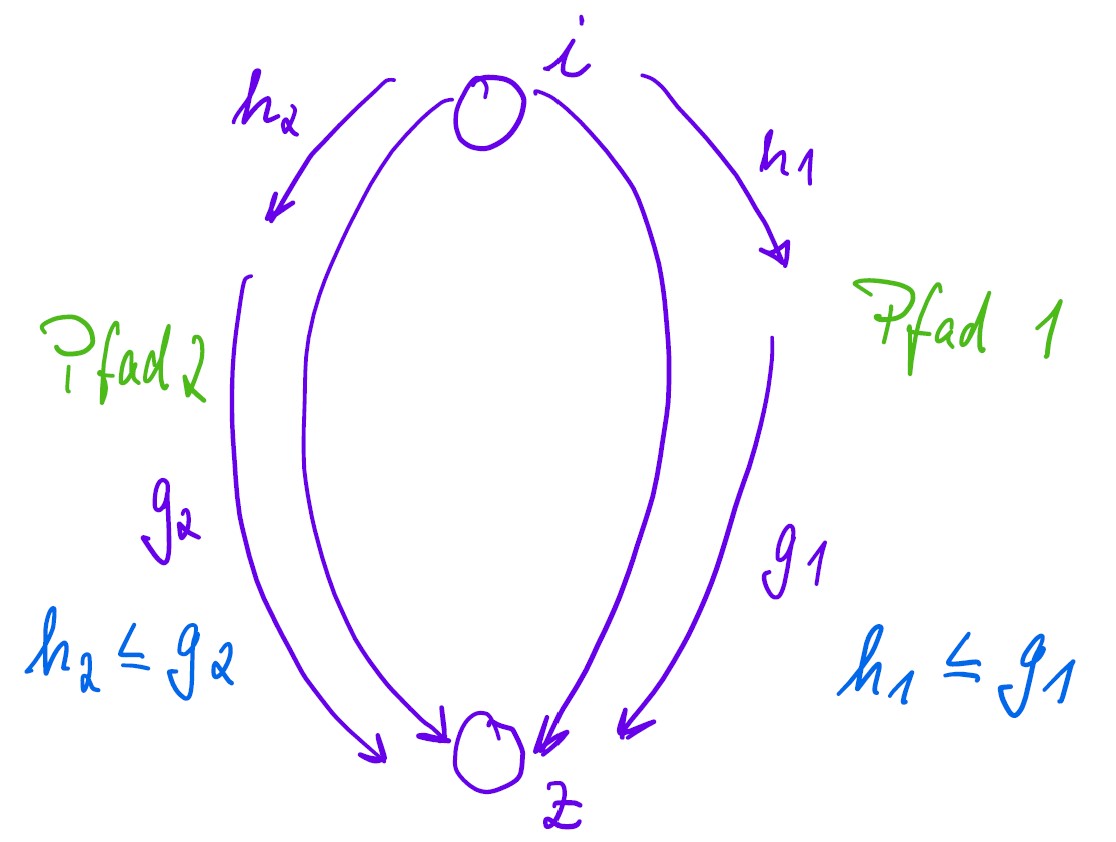 i
h₂
h₁
Pfad 2
Pfad 1
g₂
g₁
h₂ ≤ g₂
h₁ ≤ g₁
z